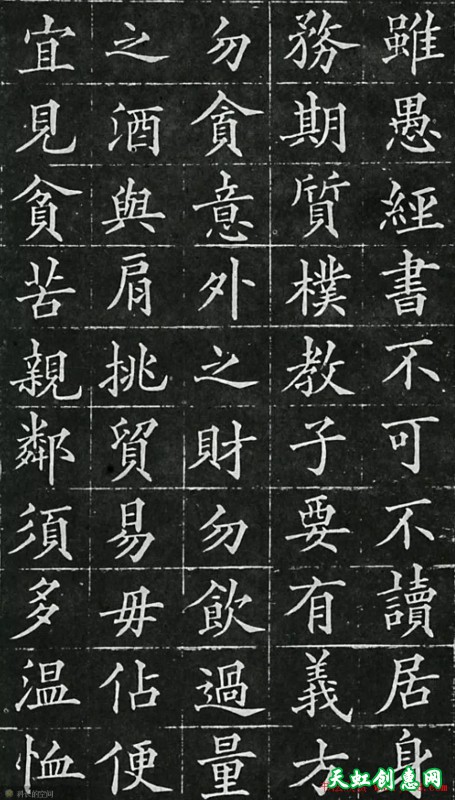 雖愚經書不可不讀居身
務期質樸教子要有義方
勿貪意外之財勿飲過量
之酒與肩挑貿易毋佔便
宜見貧苦親鄰須多温恤
天虹创惠网